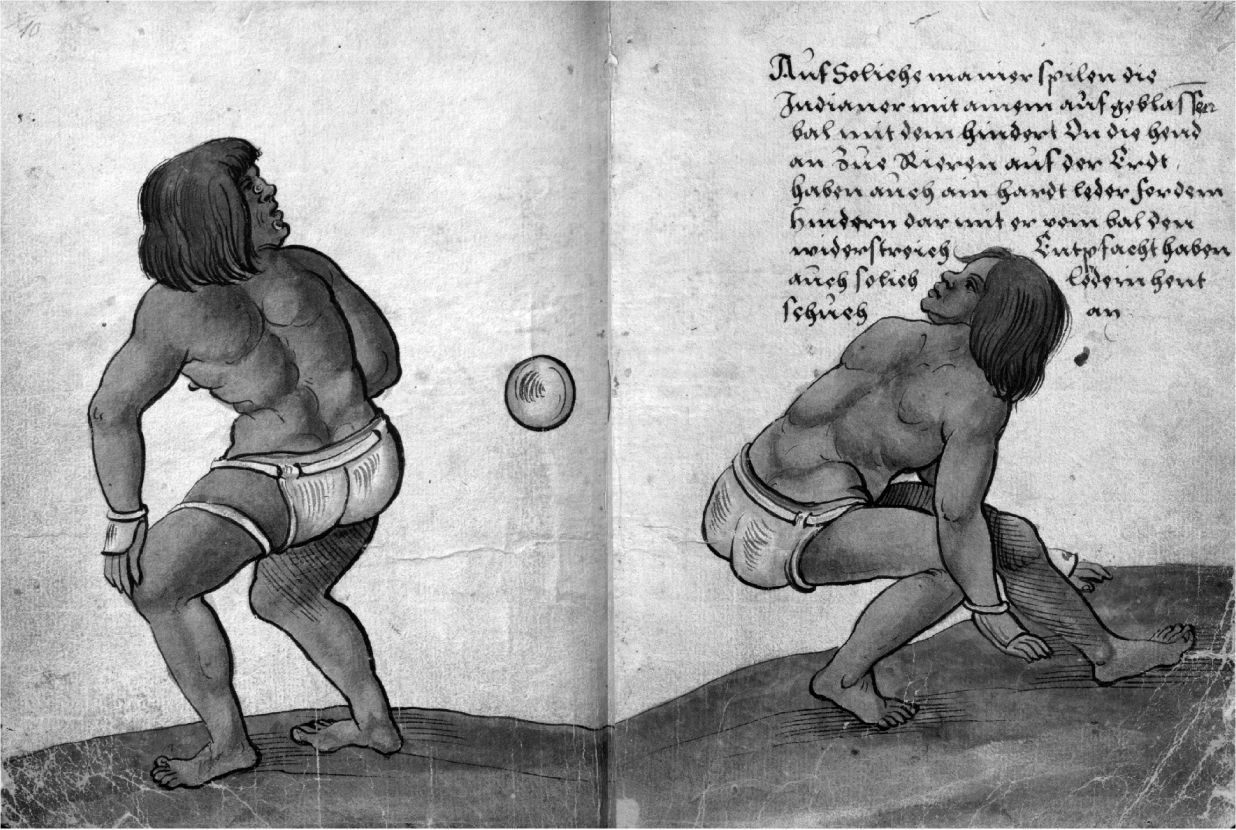 10
Auf Soliche manier spilen die
Indianer mit ainem auf geblassen
bal mit dem hindert On die hend
an Zue Rieren auf der Erdt
haben aüch ain hardt leder for dem
hindern dar mit er vom bal den
widerstreich Entpfacht haben
aüch solich ledern hent
schüch an